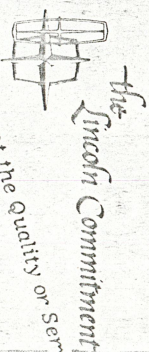 the
Lincoln Commitment
the Quality or